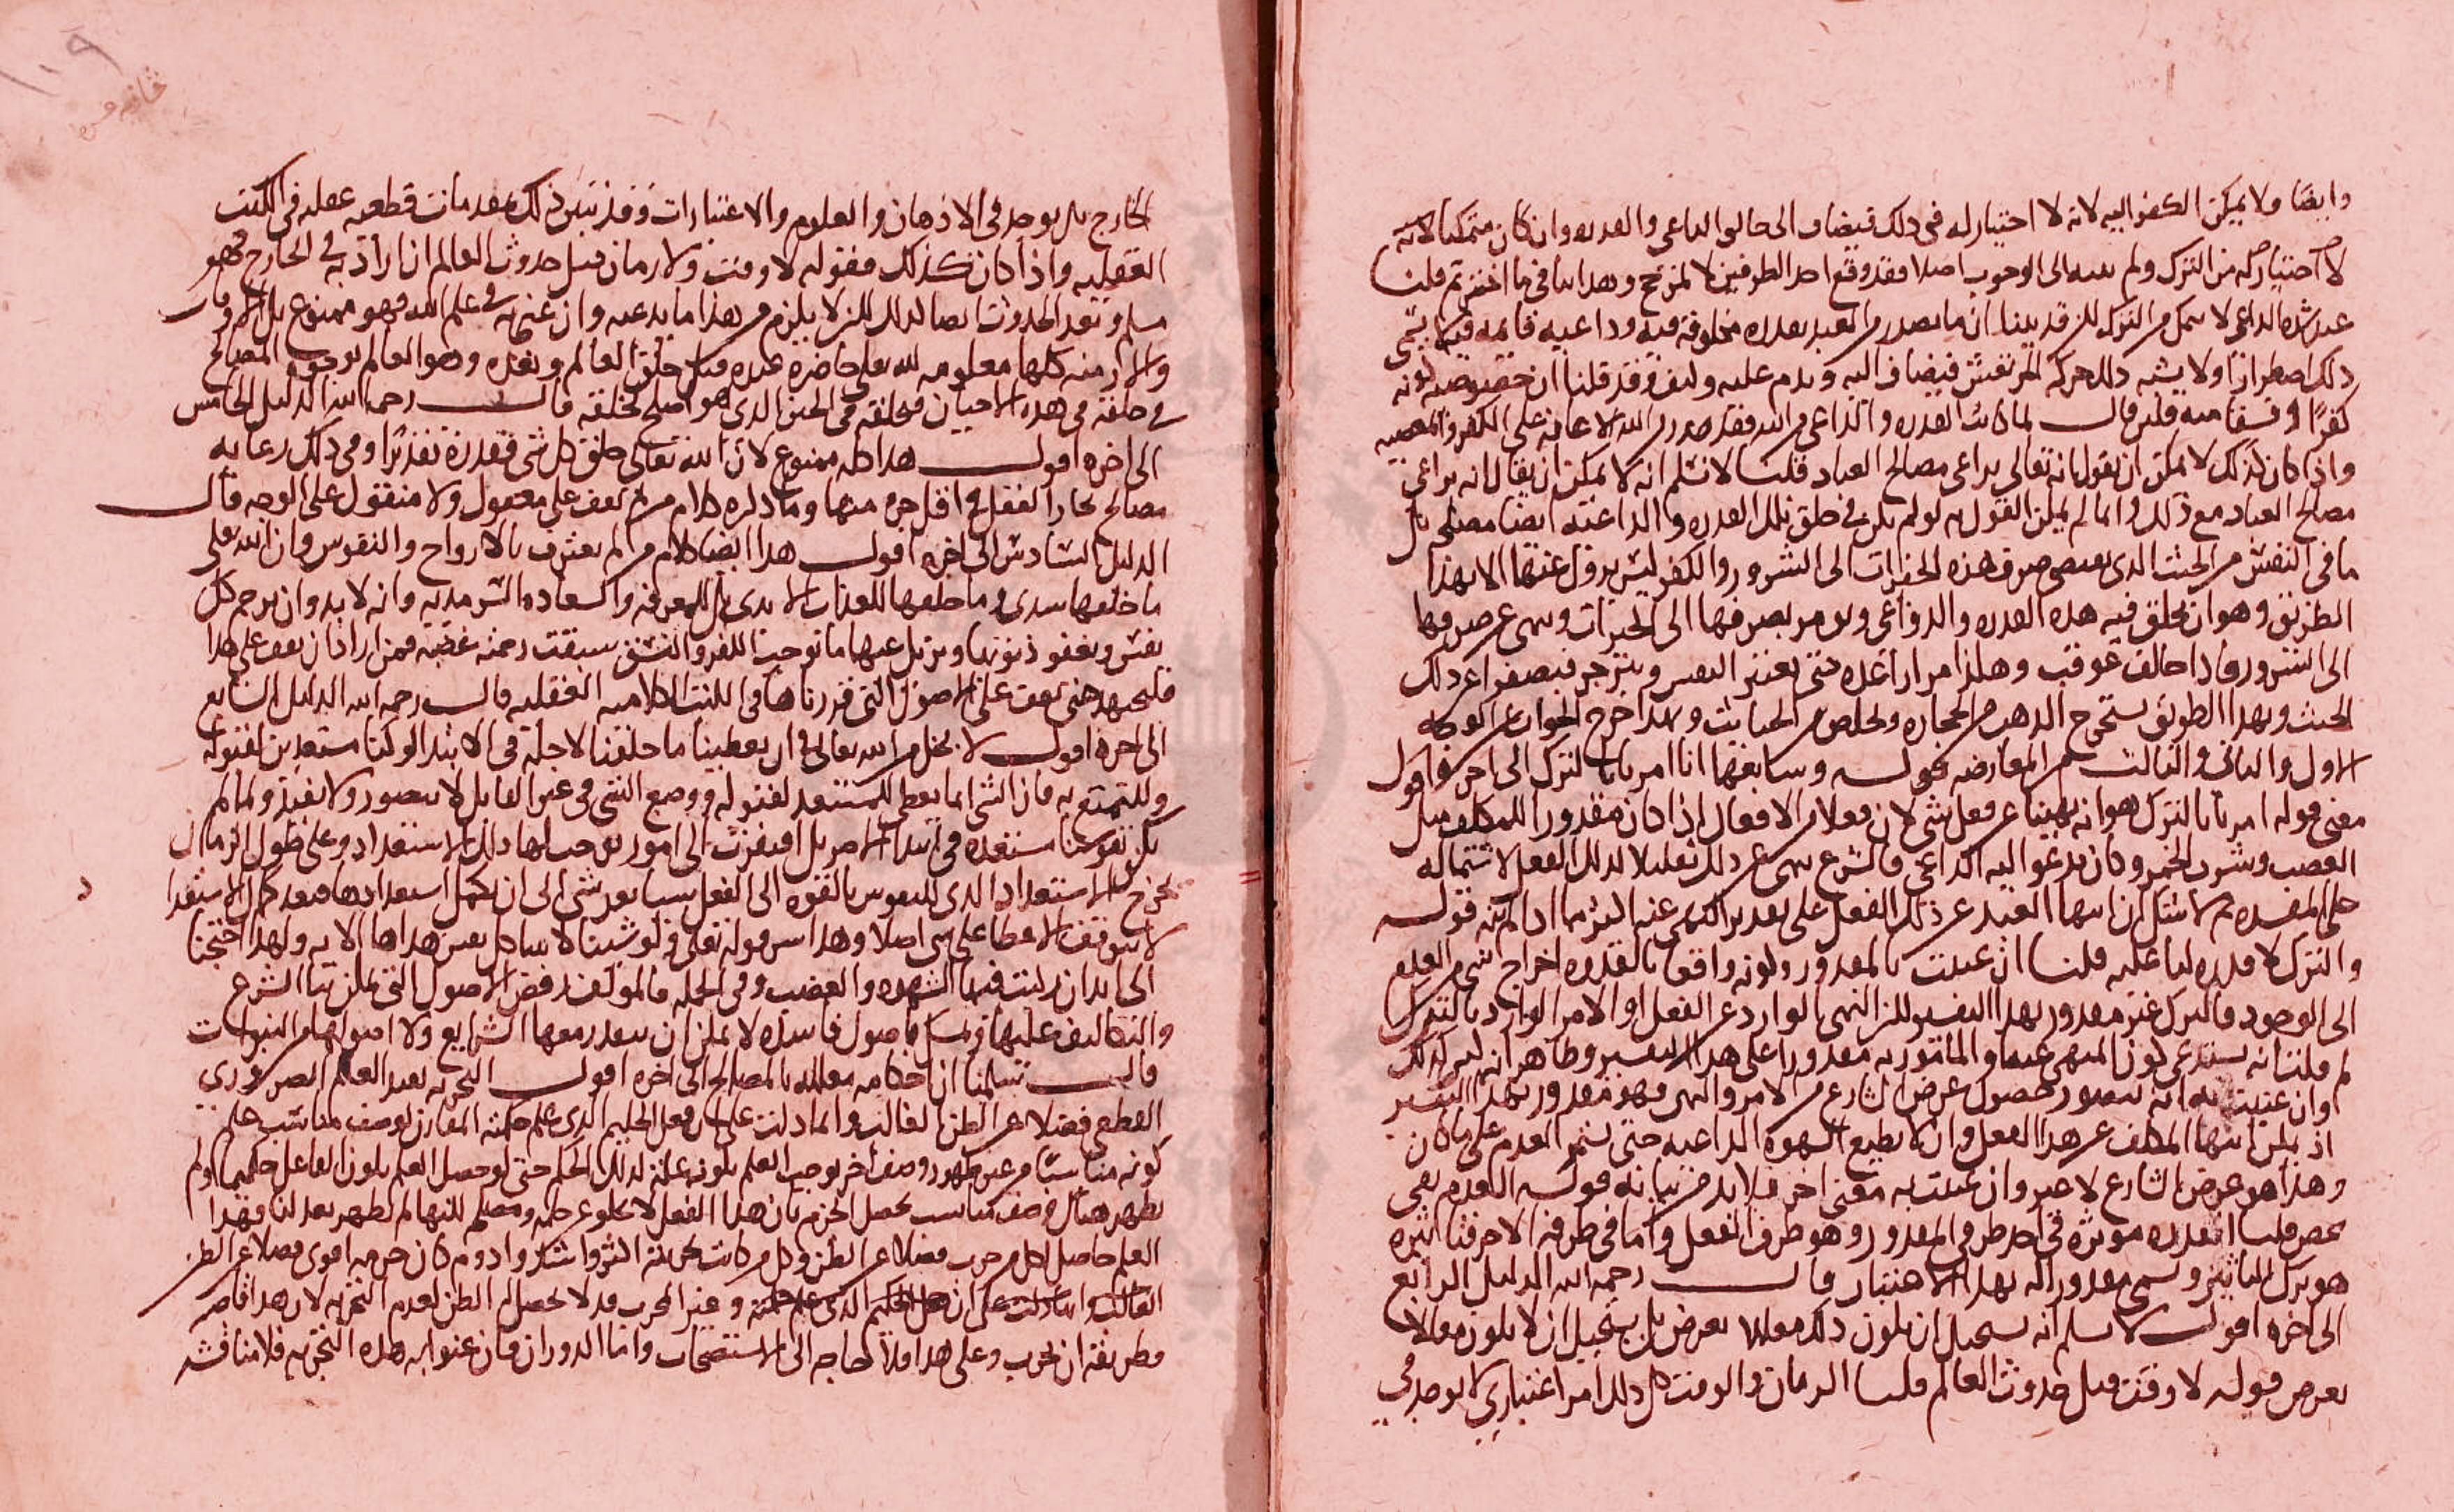 وايضا ولا يمكن الكفر اليه لانه لا اختيار له في ذلك فيضاف الى خالق الداعي والقدره وان كان متمكنا لانه
لا اختيار له من الترك ولم ينته الى الوجوب اصلا فقد وقع احد الطرفين لا لمرجح وهذا ينافي ما اخترتم قلنا
عند هذه الداعي لا يتمكن من الترك لكن قد بينا ان ما يصدر من العبد بقدره مخلوقه فيه وداعيه قائمه فيه لا يسمى
ذلك اضطرارا ولا يشبه ذلك حركه المرتعش فيضاف اليه ويذم عليه وقد قلنا ان خصوصيه كونه
كفرا او فسقا منه فلئن قال لما كانت القدره والداعي من الله فقد صدر من الله الاعانه على الكفر والمعصيه
واذا كان كذلك لا يمكن ان يقول انه تعالى يراعي مصالح العباد قلنا لا نسلم انه لا يمكن ان يقال انه يراعي
مصالح العباد مع ذلك وانما لم يمكن القول به لو لم يكن في خلق تلك القدره والداعيه ايضا مصلحه بل
ما في النفس من الخبث الذي يقتضي صرف هذه الخيرات الى الشرور والكفر ليس يزول عنها الا بهذا
الطريق وهو ان يخلق فيه هذه القدره والدواعي ويومر بصرفها الى الخيرات وينهى عن صرفها
الى الشرور فاذا خالف عوقب وهكذا مرارا عده حتى يعتبر النفس وينزجر فيصفوا عن ذلك
الخبث وبهذا الطريق يستخرج الذهب من الحجاره ويخلص من الخبائث وبهذا خرج الجواب عن الوجه
الاول والثاني والثالث من المعارضه قوله وسابعها انا امرنا بالترك الى اخره اقول
معنى قوله امرنا بالترك هو انه نهينا عن فعل شي لان فعلا من الافعال اذا كان مقدورا للمكلف مثل
الغصب وشرب الخمر وكان يدعو اليه الداعي فالشرع ينهى عن ذلك تقليلا لذلك الفعل لاشتماله
على المفسده ثم لا شك ان انتهاء العبد عن ذلك الفعل على تقدير النهي عنه اكثر مما اذا لم ينه قوله
والترك لا قدره لنا عليه قلنا ان عنيت بالمقدور كونه واقعا بالقدره اخراج الشي من العدم
الى الوجود فالترك غير مقدور بهذا التفسير لكن النهي الوارد عن الفعل او الامر الوارد بالترك
لم قلت انه يستدعي كون المنهي عنه والمامور به مقدورا على هذا التفسير وظاهر انه ليس كذلك
وان عنيت به انه يتصور حصول غرض الشارع من الامر والنهي فهو مقدور بهذا التفسير
اذ يمكن انتهاء المكلف عن هذا الفعل وان لا يطيع الشهوه الداعيه حتى يستمر العدم على ما كان
وهذا هو غرض الشارع لا غير وان عنيت به معنى اخر فلا بد من بيانه قوله العدم نفي
محض قلنا القدره موثره في احد طرفي المقدور وهو طرف الفعل واما في طرفه الاخر فتاثيره
هو ترك التاثير وسمي مقدورا له بهذا الاعتبار قال رحمه الله الدليل الرابع
الى اخره اقول لا نسلم انه يستحيل ان يكون ذلك معللا بغرض بل يستحيل ان لا يكون معللا
بغرض قوله لا وقت قبل حدوث العالم قلنا الزمان والوقت كل ذلك امر اعتباري لا يوجد في
١٠٩
الخارج بل يوجد في الاذهان والعلوم والاعتبارات وقد تبين ذلك بمقدمات قطعيه عقليه في الكتب
العقليه واذا كان كذلك فقوله لا وقت ولا زمان قبل حدوث العالم ان اراد به في الخارج فهو
مسلم وبعد الحدوث ايضا كذلك لكن لا يلزم من هذا ما يدعيه وان عنى به في علم الله فهو ممنوع بل الاوقات
والازمنه كلها معلومه لله تعالى حاضره عنده قبل خلق العالم وبعده وهو العالم بوجوه المصالح
في خلقه في هذه الاحيان فيخلقه في الحين الذي هو اصلح لخلقه قال رحمه الله الدليل الخامس
الى اخره اقول هذا كله ممنوع لان الله تعالى خلق كل شي فقدره تقديرا وفي ذلك رعايه
مصالح تحار العقل في اقل جزء منها وما ذكره كلام من لم يقف على معقول ولا منقول على الوجه قال
الدليل السادس الى اخره اقول هذا ايضا كلام من لم يعترف بالارواح والنفوس وان الله تعالى
ما خلقها سدى وما خلقها للعذاب الابدي بل للمعرفه والسعاده السرمديه وانه لا بد وان يرحم كل
نفس ويغفر ذنوبها ويزيل عنها ما توجب الكفر والفسق سبقت رحمته غضبه فمن اراد ان يقف على هذا
فليجتهد حتى يقف على الاصول التي قررناها في الكتب الكلاميه العقليه قال رحمه الله الدليل السابع
الى اخره اقول لا بخل من الله تعالى في ان يعطينا ما خلقنا لاجله في الابتداء لو كنا مستعدين لقبوله
وللتمتع به فان الشي انما يعطى للمستعد لقبوله ووضع الشي في غير القابل لا يتصور ولا يفيد ولما لم
يكن نفوسنا مستعده في ابتداء الامر بل افتقرت الى امور يوجب لها ذلك الاستعداد وعلى طول الزمان
يخرج الاستعداد الذي للنفوس بالقوه الى الفعل شيئا بعد شي الى ان يكمل استعدادها فبعد كمال الاستعداد
لا يتوقف الاعطاء على شي اصلا وهذا سر قوله تعالى ولو شئنا لاتينا كل نفس هداها الايه ولهذا احتجنا
الى ابدان ركبت فيها الشهوه والغضب وفي الجمله فالمولف رفض الاصول التي يمكن بناء الشرع
والتكاليف عليها وتمسك باصول فاسده لا يمكن ان يتقرر معها الشرايع ولا اصولها من النبوات
قال سلمنا ان احكامه معلله بالمصالح الى اخره اقول التجربه يفيد العلم الضروري
القطعي فضلا عن الظن الغالب وانما دلت على ان فعل الحكيم الذي علم حكمته المقارن لوصف مناسب علم
كونه مناسبا من غير ظهور وصف اخر يوجب العلم بكونه علة لذلك الحكم حتى لو حصل العلم بكون الفاعل حكيما ولم
يظهر هناك وصف مناسب يحصل الجزم بان هذا الفعل لا يخلو عن حكمه ومصلحه لكنها لم تظهر بعد لنا فهذا
العلم حاصل لكل من جرب فضلا عن الظن وكل من كانت تجربته اكثر واشد وادوم كان جزمه اقوى فضلا عن الظن
الغالب وانما دلت على ان فعل الحكيم الذي علم حكمته وغير المجرب قد لا يحصل له الظن لعدم التجربه لان هذا خاصه
فطريقه ان يجرب وعلى هذا فلا حاجه الى الاستصحاب واما الدوران فان عنوا به هذه التجربه فلا مناقشه